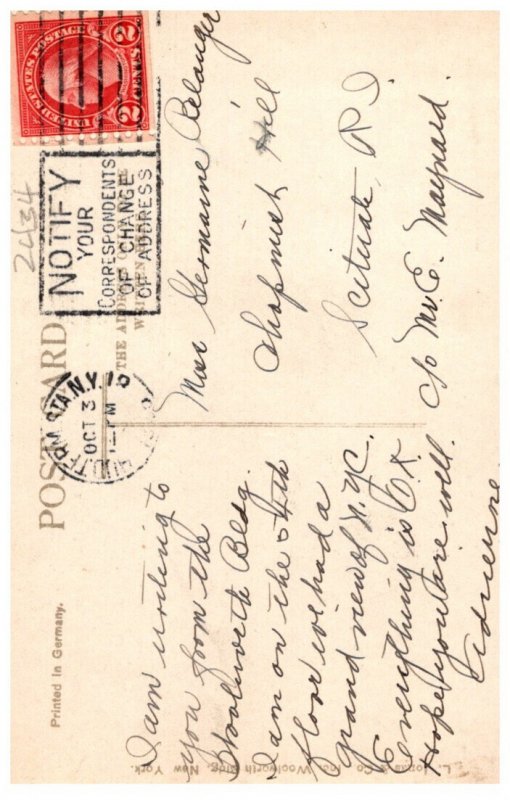 POST CARD
Printed in Germany.
2434
UNITED STATES POSTAGE
2 CENTS 2
NOTIFY
YOUR
CORRESPONDENTS
OF CHANGE
OF ADDRESS
STA. N.Y.
OCT 3
PM
THE ADDRESS
I am writing to
you from the
Woolworth Bldg.
I am on the 54th
floor we had a
grand view of N.Y.C.
Everything is O.K.
Hope you are well.
Adrienne
Miss Germaine Belanger
Chapmist Hill
Scituate, R.I.
c/o Mr. E. Maynard.
& Co. Inc. Woolworth Bldg., New York.